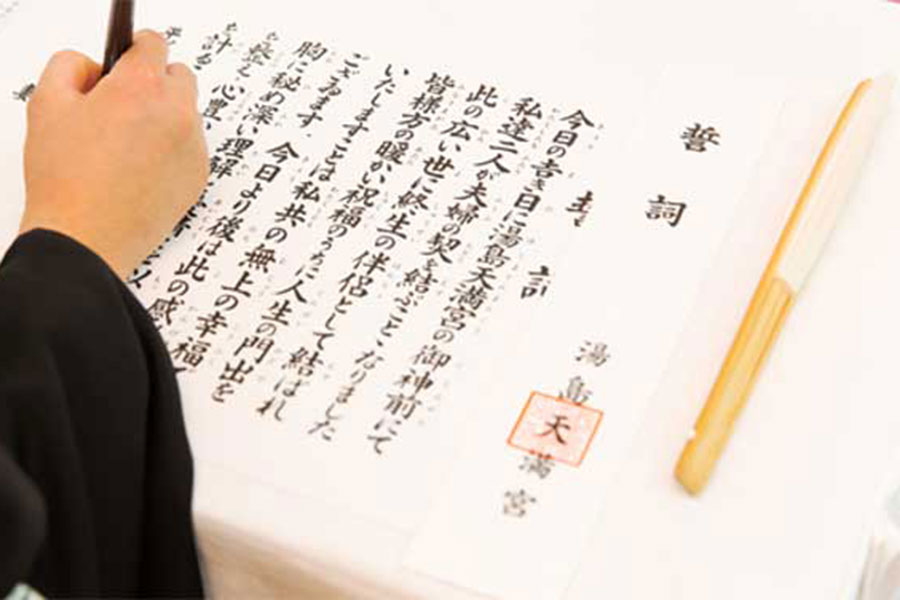 誓詞
湯島天満宮
誓詞
今日の吉き日に湯島天満宮の御神前にて
私達二人が夫婦の契を結ぶことゝなりました
此の広い世に終生の伴侶として結ばれ
皆様方の暖かい祝福のうちに人生の門出を
いたしますことは私共の無上の幸福
ございます。今日より後は此の感
胸に秘め深い理解
心豊
計る